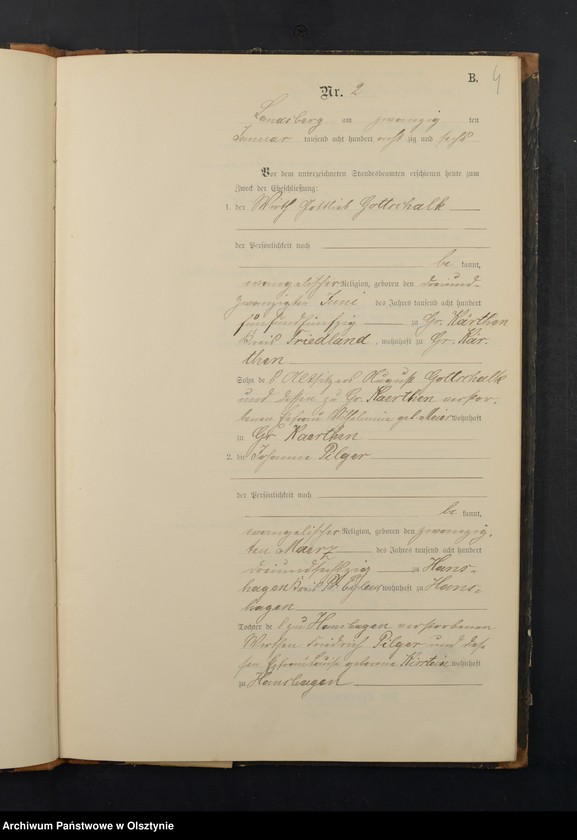 B. 4
Nr. 2
Landsberg am zwanzig ten
Januar tausend acht hundert acht zig und sechs
Vor dem unterzeichneten Standesbeamten erschienen heute zum
Zweck der Eheschließung:
1. der Wirth Gottlieb Gottschalk
der Persönlichkeit nach
be kannt,
evangelischer Religion, geboren den dreiund-
zwanzigsten Juni des Jahres tausend acht hundert
fünfundfünfzig zu Gr. Kärthen
Kreis Friedland, wohnhaft zu Gr. Kär-
then
Sohn des Altsitzers August Gottschalk
und dessen zu Gr. Kaerthen verstor-
benen Ehefrau Wilhelmine geb. Meier wohnhaft
zu Gr. Kaerthen
2. die Johanne Pilger
der Persönlichkeit nach
be kannt,
evangelischer Religion, geboren den zwanzig-
ten Maerz des Jahres tausend acht hundert
dreiundsechszig zu Hans-
hagen Kreis Pr. Eylau wohnhaft zu Hans-
hagen
Tochter des zu Hanshagen verstorbenen
Wirthen Friedrich Pilger und des-
sen Ehefrau Louise geborene Kirstein wohnhaft
zu Hanshagen
Archiwum Państwowe w Olsztynie